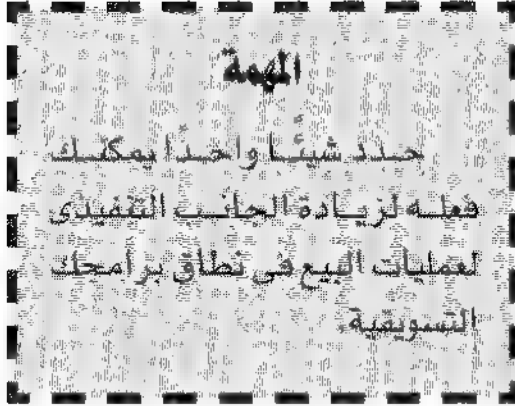 المهمة
حدد شيئًا واحدًا يمكنك
فعله لزيادة الجانب التنفيذى
لعمليات البيع فى نطاق برامجك
التسويقية.